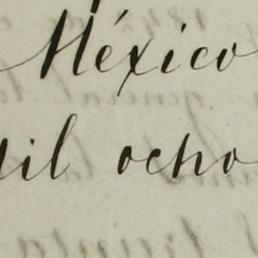 México
mil ocho